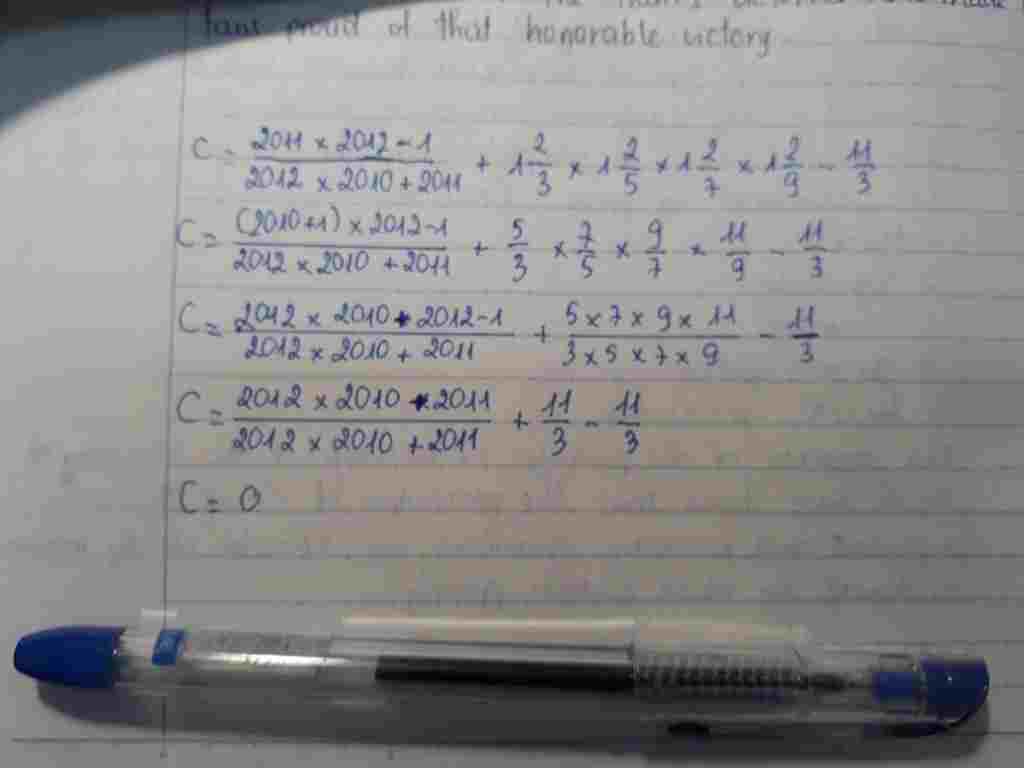 fans proud of that honorable victory
C = \frac{2011 \times 2012 - 1}{2012 \times 2010 + 2011} + 1\frac{2}{3} \times 1\frac{2}{5} \times 1\frac{2}{7} \times 1\frac{2}{9} - \frac{11}{3}
C = \frac{(2010+1) \times 2012 - 1}{2012 \times 2010 + 2011} + \frac{5}{3} \times \frac{7}{5} \times \frac{9}{7} \times \frac{11}{9} - \frac{11}{3}
C = \frac{2012 \times 2010 + 2012 - 1}{2012 \times 2010 + 2011} + \frac{5 \times 7 \times 9 \times 11}{3 \times 5 \times 7 \times 9} - \frac{11}{3}
C = \frac{2012 \times 2010 + 2011}{2012 \times 2010 + 2011} + \frac{11}{3} - \frac{11}{3}
C = 0